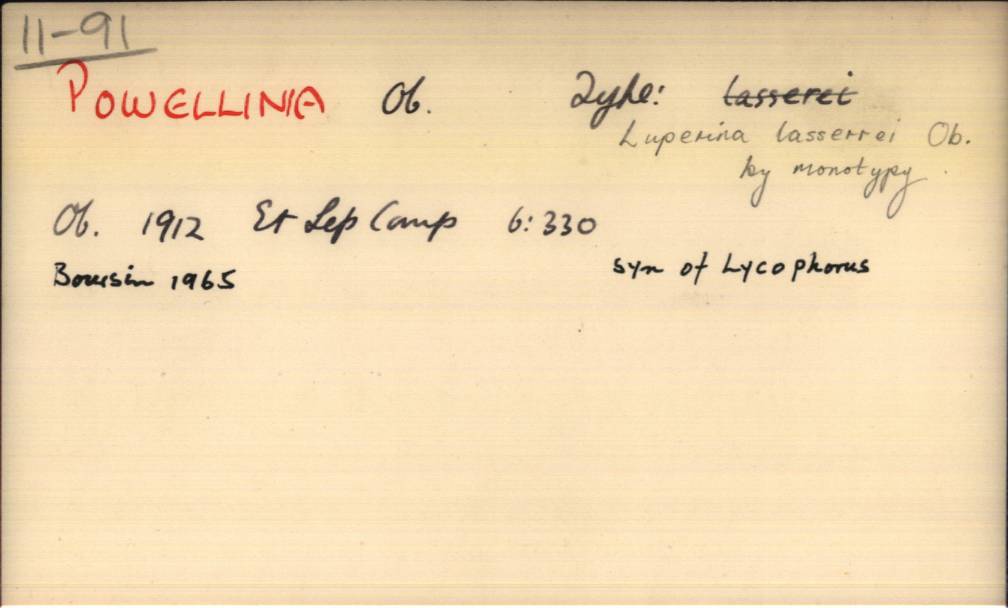 11-91
POWELLINIA Ob. Type: lasserei
Luperina lasserrei Ob.
by monotypy.
Ob. 1912 Et Lep Comp 6: 330
Boursin 1965 syn of Lycophorus